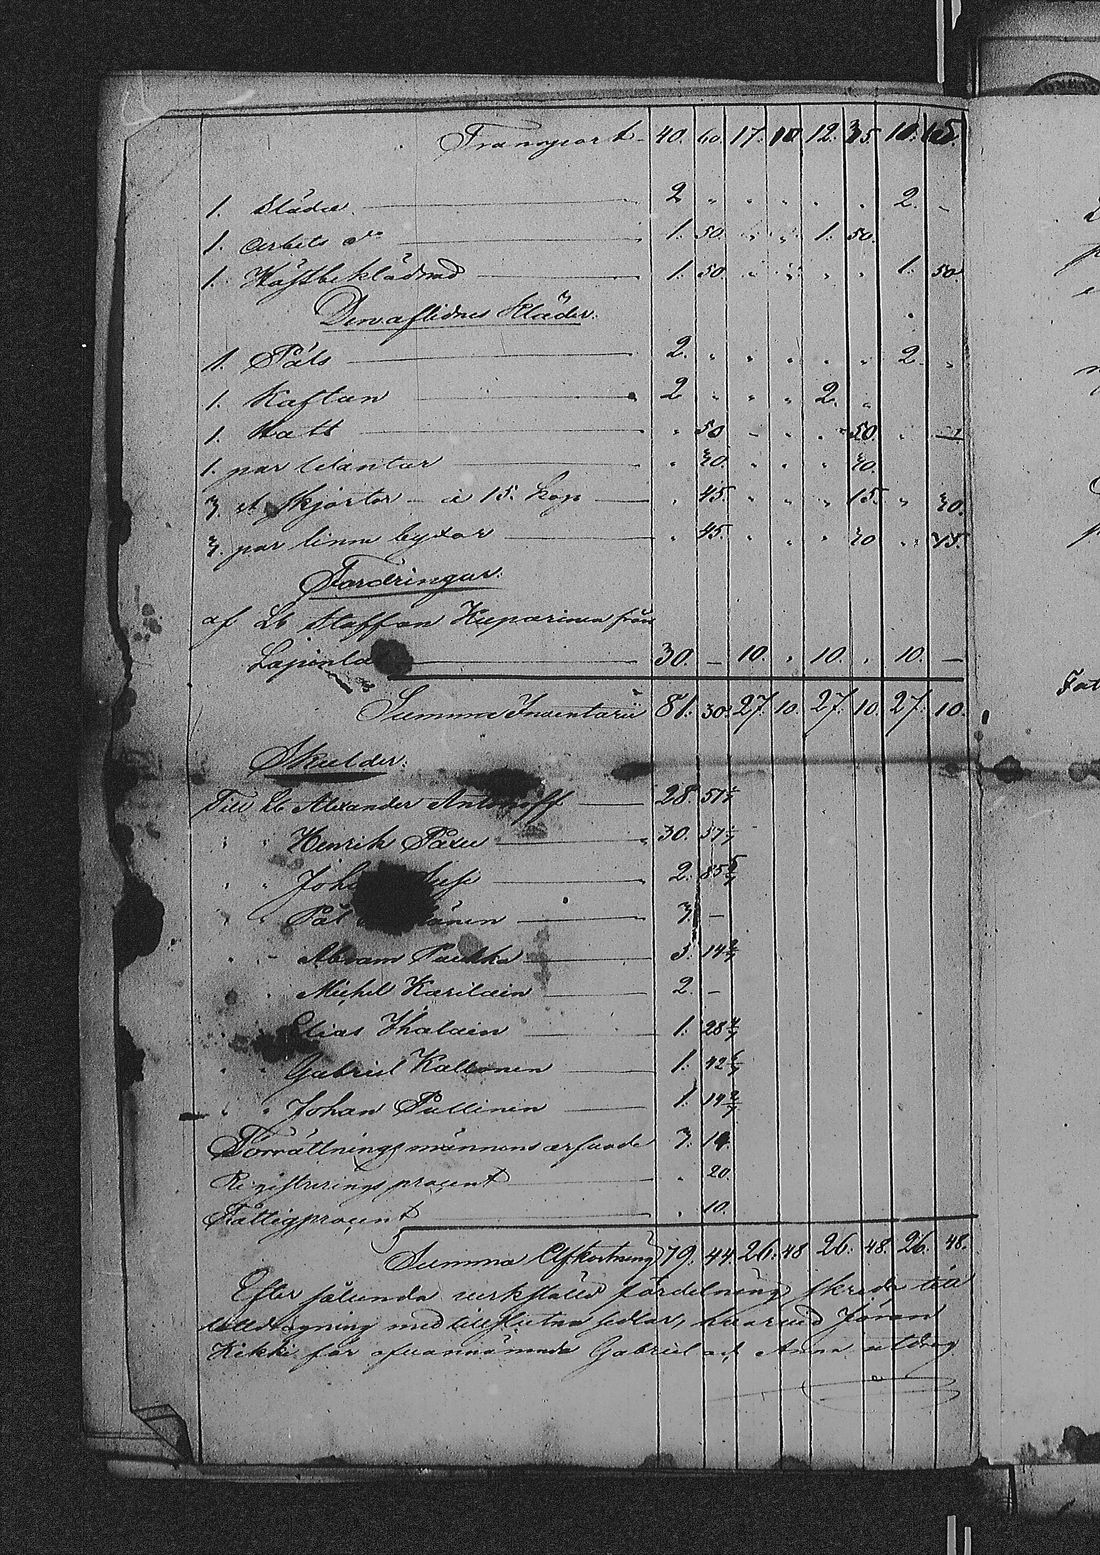 Transport 40. 60. 17. 10. 12. 35. 10. 15.
1. Släde 2 " " " " " 2. –
1. Arbets do 1. 50. " " 1. 50.
1. Hästbeklädnad 1. 50 " " " " 1. 50
Den aflidnes Kläder.
1. Päls 2. " " " " " 2. "
1. Kaftan 2 " " " 2. "
1. Hatt " 50 – " " 50. " –
1. par 30. " " " 30.
3. st skjortor – à 15. kop " 45 " " " 15. " 30.
3. par linne byxor " 45. " " " 30 " 15.
Fordringar.
af Lb Staffan Kuparinen från
30. – 10. " 10. " 10. –
Summa Inventarii 81. 30. 27. 10. 27. 10. 27. 10.
Skulder.
Till Lb Alexander Antonoff 28. 57 1/7
" " Henrik 30. 57 1/7
" " 2. 85 5/7
" " 3. –
" " Abram Paukku 5. 14 2/7
" Michel Karilain 2. –
Elias Ihalain 1. 28 4/7
" " Gabriel Kallonen 1. 42 6/7
" " Johan Pullinen 1. 14 2/7
Förrättningsmännens arfvode 3. 14
Registreringsprocent " 20.
Fattigprocent " 10.
Summa Afkortning 79. 44. 26. 48 26. 48. 26. 48.
Efter sålunda verkställd fördelning skreds till
lottdragning med tillslutna sedlar, hvarvid Jöran
Kikki för ofvannämnde Gabriel och Anna utdrog